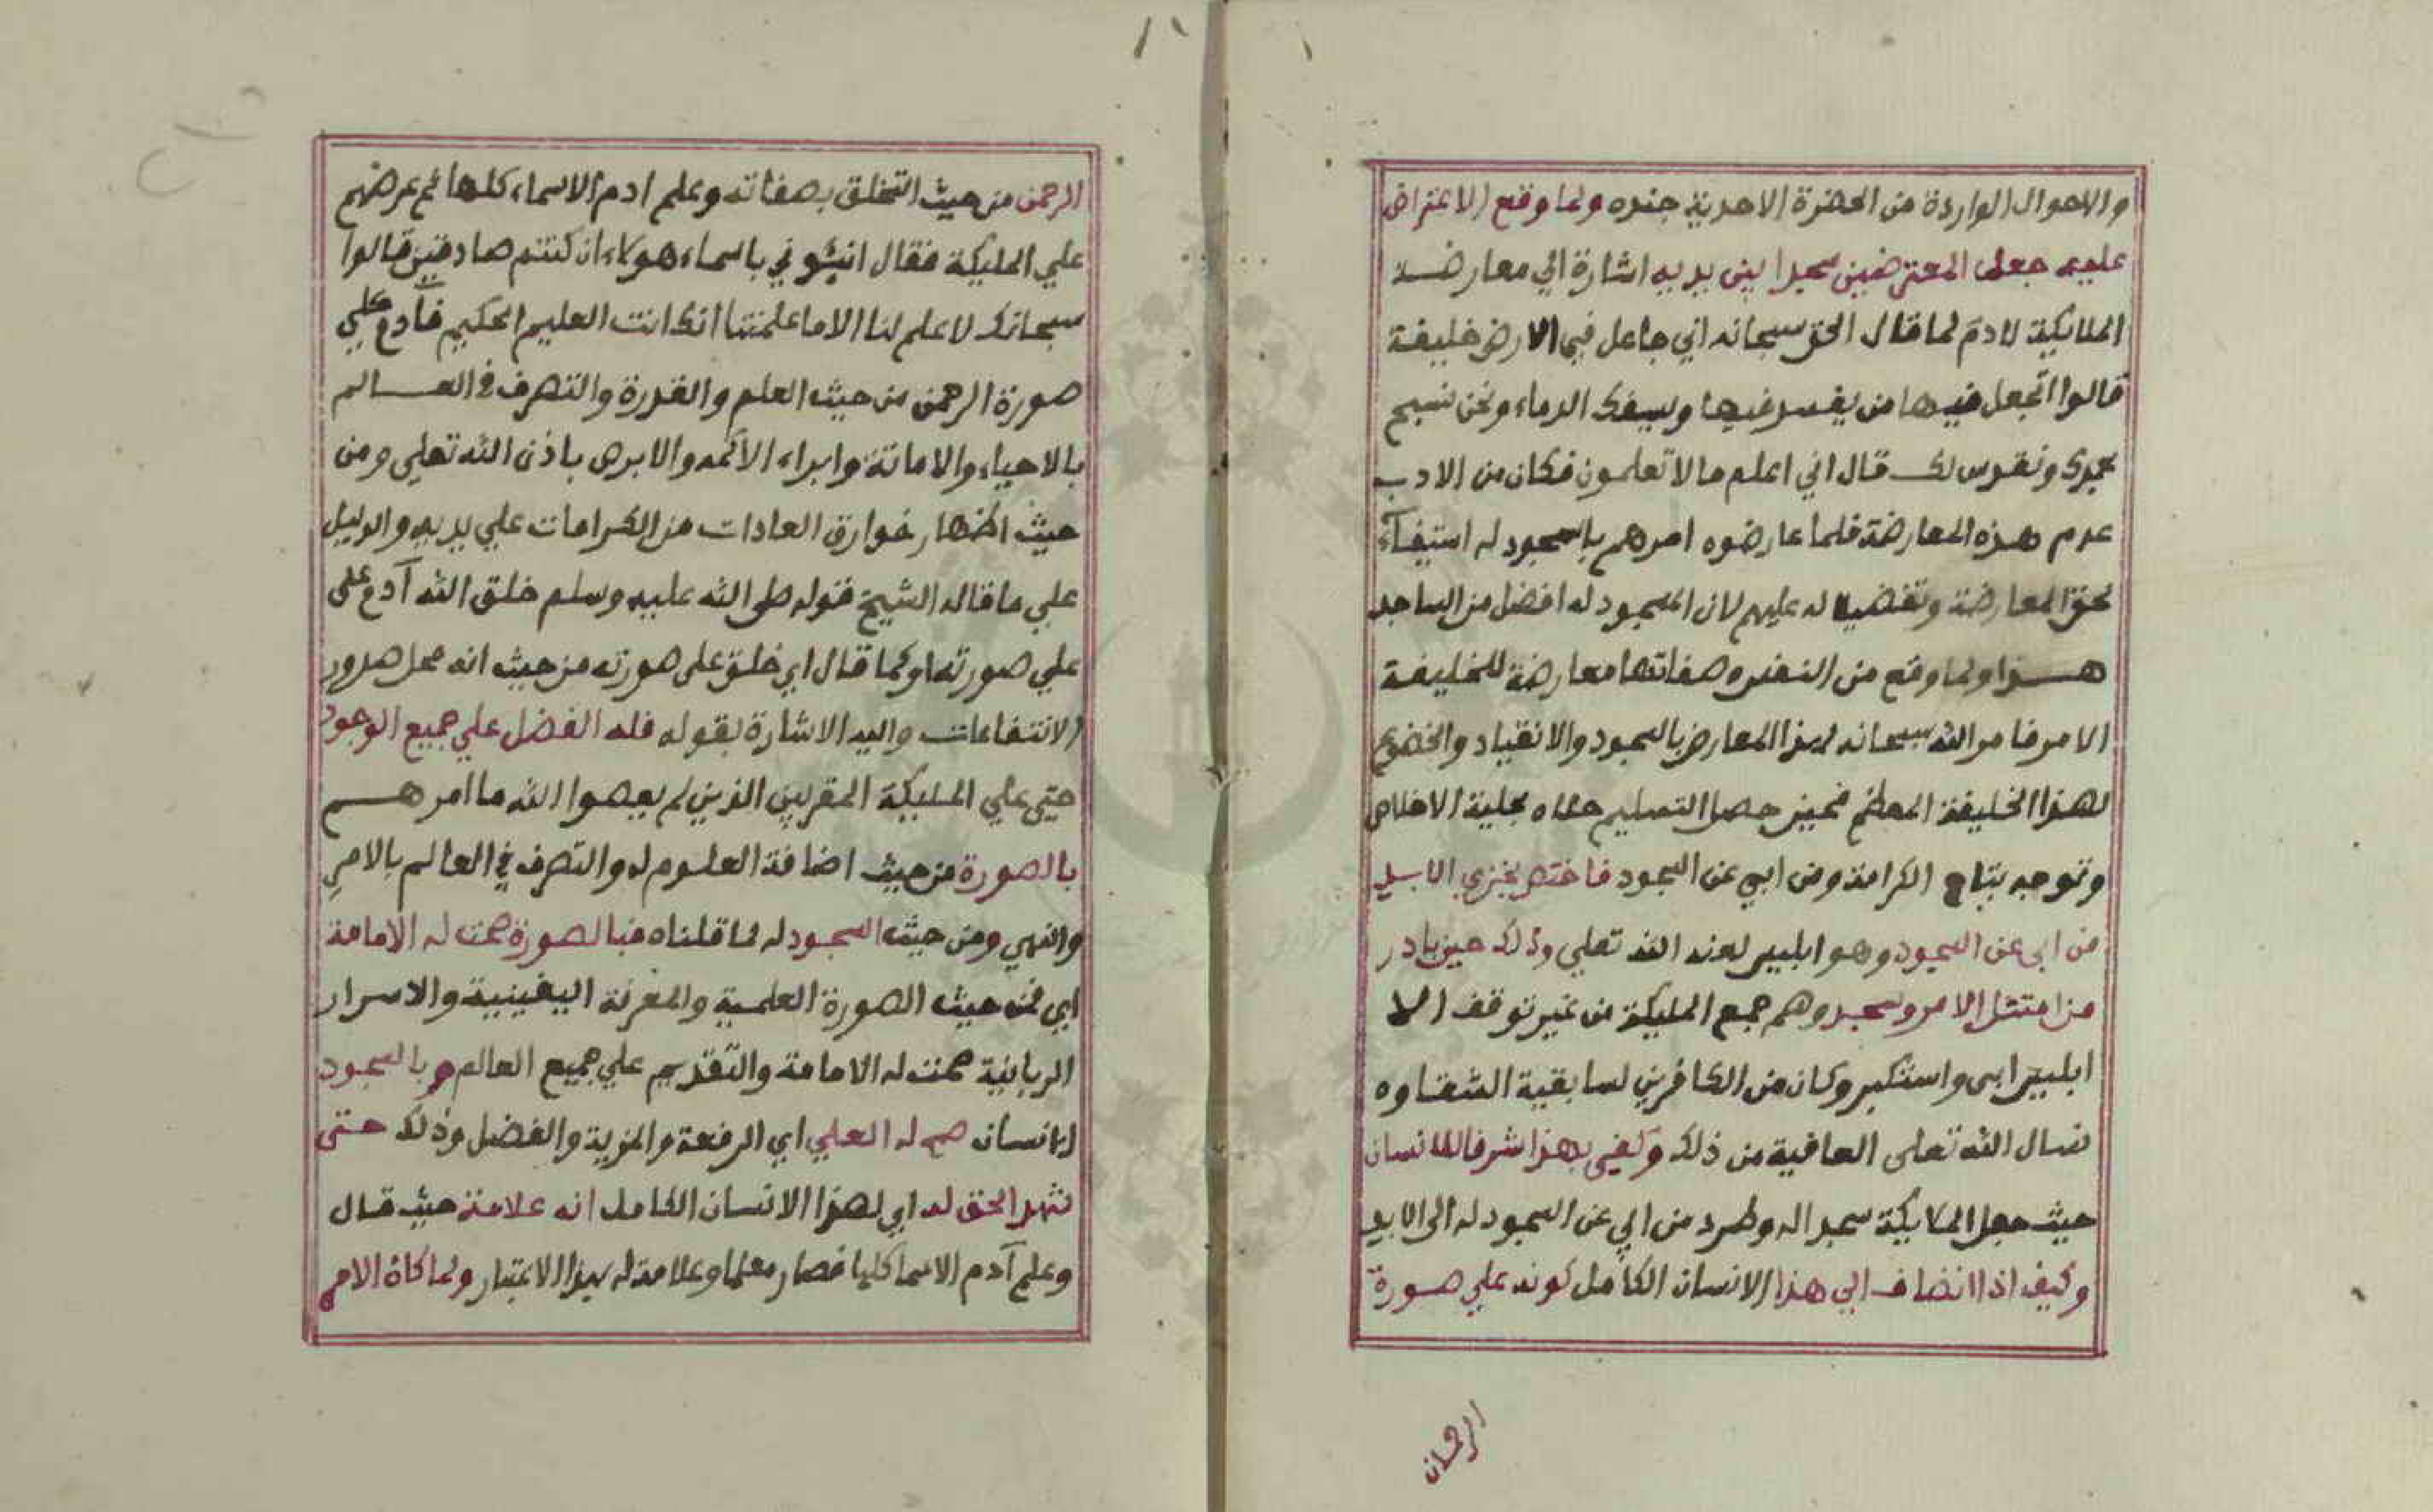 والاحوال الواردة من الحضرة الاحدية جنده ولما وقع الاعتراض
عليه جعل المعترضين سجدا بين يديه اشارة الي معارضة
الملائكية لادم لما قال الحق سبحانه اني جاعل في الارض خليفة
قالوا اتجعل فيها من يفسد فيها ويسفك الدماء ونحن نسبح
بحمدك ونقدس لك قال اني اعلم ما لا تعلمون فكان من الادب
عدم هذه المعارضة فلما عارضوه امرهم بالسجود له استيفآء
لحق المعارضة وتفضيلا له عليهم لان المسجود له افضل من الساجد
هذا ولما وقع من النفس وصفاتها معارضة للخليفة
الامر فامر الله سبحانه لهذا المعارض بالسجود والانقياد والخضوع
لهذا الخليفة المعظم فحين حصل التسليم حلاه بحلية الاخلاص
وتوجه بتاج الكرامة ومن ابي عن السجود فاختص بخزي الابد
من ابى عن السجود وهو ابليس لعنه الله تعلي وذلك حين بادر
من امتثل الامر وسجد وهم جمع المليكة من غير توقف الا
ابليس ابى واستكبر وكان من الكافرين لسابقية الشقاوه
نسال الله تعلى العافية من ذلك وكفي بهذا شرفا للانسان
حيث جعل الملايكة سجدا له وطرد من ابي عن السجود له الى الابد
وكيف اذا انضاف الي هذا الانسان الكامل كونه علي صورة
الرحمان
الرحمن من حيث التخلق بصفاته وعلم ادم الاسماء كلها ثم عرضهم
علي المليكة فقال انبئوني باسماء هولاء ان كنتم صادقين قالوا
سبحانك لا علم لنا الا ما علمتنا انك انت العليم الحكيم فآدم علي
صورة الرحمن من حيث العلم والقدرة والتصرف في العالم
بالاحياء والاماتة وابراء الاكمه والابرص باذن الله تعلي ومن
حيث اظهار خوارق العادات من الكرامات علي يديه والدليل
علي ما قاله الشيخ قوله صلى الله عليه وسلم خلق الله آدم على
علي صورته او كما قال اي خلق على صورته من حيث انه محل صدور
الانتفاعات واليه الاشارة بقوله فله الفضل علي جميع الوجود
حتى علي المليكة المقربين الذين لم يعصوا الله ما امرهم
بالصورة من حيث اضافة العلوم له والتصرف في العالم بالامر
والنهي ومن حيث السجود له لما قلناه فبالصورة صحت له الامامة
اي فمن حيث الصورة العلمية والمعرفة اليقينية والاسرار
الربانية صحت له الامامة والتقديم علي جميع العالم وبالسجود
للانسان صح له العلي اي الرفعة والمزية والفضل وذلك حتى
شهد الحق له اي لهذا الانسان الكامل انه علامة حيث قال
وعلم آدم الاسما كلها فصار معلما وعلامة له بهذا الاعتبار ولما كان الامر